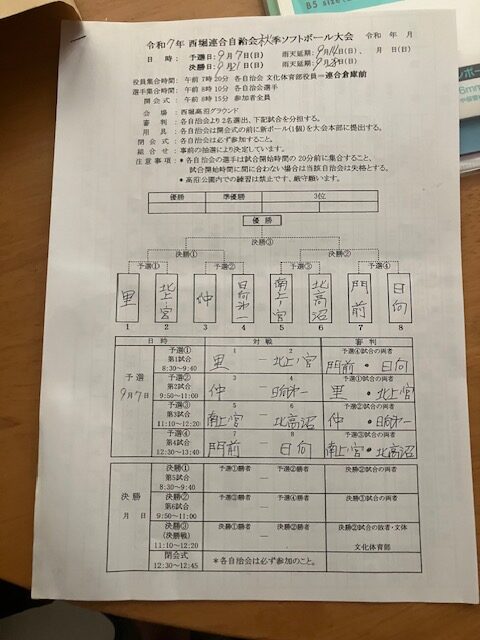 令和7年 西堀連合自治会秋季ソフトボール大会 令和 年 月
日 時: 予選日: 9月7日(日) 雨天延期: 9月14日(日)、 月 日(日)
決勝日: 9月21日(日) 雨天延期: 9月28日(日)
役員集合時間: 午前 7時20分 各自治会 文化体育部役員=連合倉庫前
選手集合時間: 午前 8時10分 各自治会選手
開 会 式: 午前 8時15分 参加者全員
会 場: 西堀高沼グラウンド
審 判: 各自治会より2名選出、下記試合を分担する。
用 具: 各自治会は開会式の前に新ボール(1個)を大会本部に提出する。
閉 会 式: 各自治会は必ず参加すること。
組 合 せ: 事前の抽選により決定しています。
注 意 事 項: *各自治会の選手は試合開始時間の20分前に集合すること、
試合開始時間に間に合わない場合は当該自治会は失格とする。
*高沼公園内での練習は禁止です、厳守願います。
優勝 準優勝 3位
優 勝
決勝③
決勝① 決勝②
予選① 予選② 予選③ 予選④
里 北上ノ宮 仲 日向第一 南上ノ宮 北高沼 門前 日向
1 2 3 4 5 6 7 8
日 時 対 戦 審 判
予 選 9月7日
予選① 第1試合 8:30~9:40 1 里 ー 2 北上ノ宮 予選④試合の両者 門前・日向
予選② 第2試合 9:50~11:00 3 仲 ー 4 日向第一 予選①試合の両者 里・北上ノ宮
予選③ 第3試合 11:10~12:20 5 南上ノ宮 ー 6 北高沼 予選②試合の両者 仲・日向第一
予選④ 第4試合 12:30~13:40 7 門前 ー 8 日向 予選③試合の両者 南上ノ宮・北高沼
決 勝 月 日
決勝① 第5試合 8:30~9:40 予選①勝者 ー 予選②勝者 決勝②試合の両者
決勝② 第6試合 9:50~11:00 予選③勝者 ー 予選④勝者 決勝①試合の両者
決勝③ (決勝戦) 11:10~12:20 決勝①勝者 ー 決勝②勝者 決勝②試合の敗者・文体 文化体育部
閉会式 12:30~12:45 *各自治会は必ず参加のこと。
B5
6mm